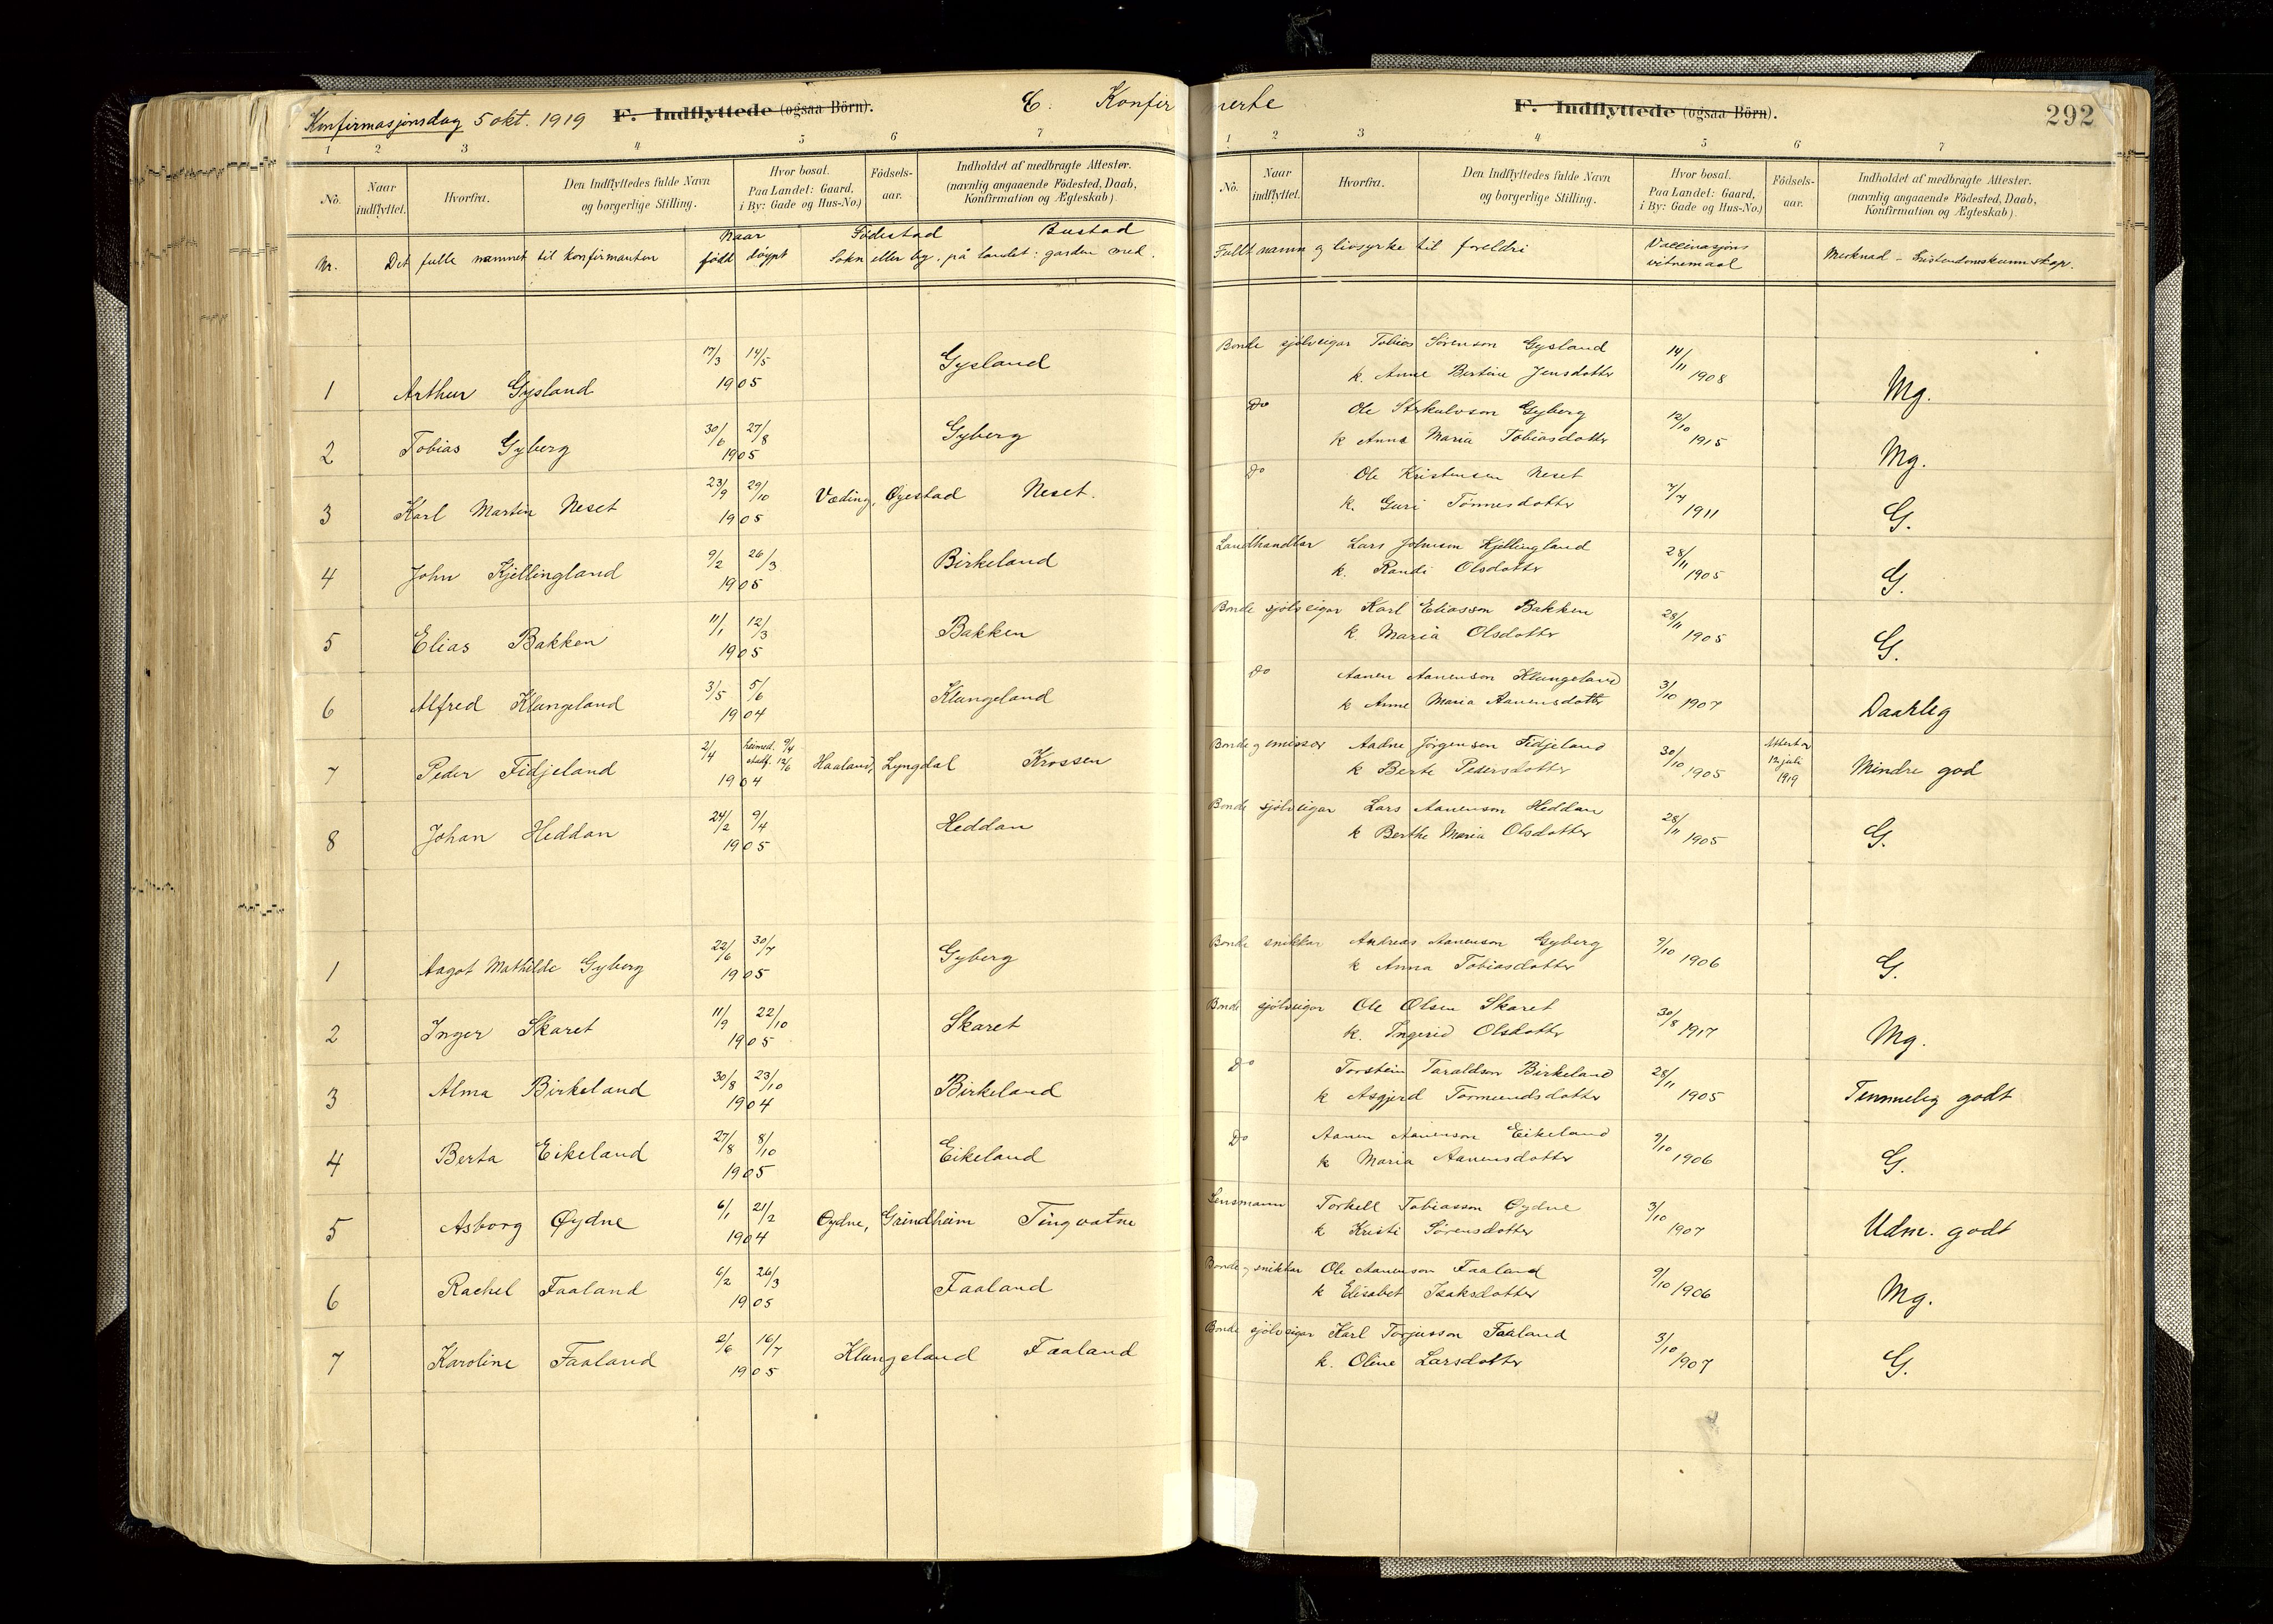 Konfirmasjonsdag 5 okt. 1919 F. Indflyttede (ogsaa Börn). E. Konfir
1 2 3 4 5 6 7
No. Naar indflyttet. Hvorfra. Den Indflyttedes fulde Navn og borgerlige Stilling. Hvor bosat. Paa Landet: Gaard, i By: Gade og Hus-No.) Födsels-aar. Indholdet af medbragte Attester. (navnlig angaaende Födested, Daab, Konfirmation og Ægteskab)
Naar Födestad Bustad
Nr. Det fulle namnet til konfirmanten född döypt Sokn eller by, på landet: garden med.
17/3 14/5 Gysland
1 Arthur Gysland 1905
30/6 27/8 Gyberg
2 Tobias Gyberg 1905
23/9 29/10 Væding, Øyestad Neset.
3 Karl Martin Neset 1905
9/2 26/3 Birkeland
4 John Kjellingland 1905
11/1 12/3 Bakken
5 Elias Bakken 1905
3/5 5/6 Klungeland
6 Alfred Klungeland 1904
2/4 heimed. 9/4
stadf. 12/6 Haaland, Lyngdal Krossen
7 Peder Fidjeland 1904
24/2 9/4 Heddan
8 Johan Heddan 1905
22/6 30/7 Gyberg
1 Aagot Mathilde Gyberg 1905
11/9 22/10 Skaret
2 Inger Skaret 1905
30/8 23/10 Birkeland
3 Alma Birkeland 1904
27/8 8/10 Eikeland
4 Berta Eikeland 1905
6/1 21/2 Øydne, Grindheim Tingvatne
5 Asborg Øydne 1904
6/2 26/3 Faaland
6 Rachel Faaland 1905
2/6 16/7 Klungeland Faaland
7 Karoline Faaland 1905
merte F. Indflyttede (ogsaa Börn). 292
1 2 3 4 5 6 7
No. Naar indflyttet. Hvorfra. Den Indflyttedes fulde Navn og borgerlige Stilling. Hvor bosat. Paa Landet: Gaard, i By: Gade og Hus-No.) Födsels-aar. Indholdet af medbragte Attester. (navnlig angaaende Födested, Daab, Konfirmation og Ægteskab)
Fullt namn og livsyrke til foreldri Vaccinasjons vitnemaal Merknad - Kristendomskunnskap.
Bonde sjölveigar Tobias Sörenson Gysland 14/11 1908
k. Anne Bertine Jensdotter Mg.
Do Ole Sirkulvson Gyberg 12/10 1915
k Anna Maria Tobiasdotter Mg.
Do Ole Kristensen Neset 7/7 1911
k. Guri Tönnesdotter G.
Landhandlar Lars Johnson Kjellingland 28/11 1905
k. Randi Olsdotter G.
Bonde sjölveigar Karl Eliasson Bakken 28/11 1905
k. Maria Olsdotter G.
Do Aanen Aanenson Klungeland 3/10 1907
k Anne Maria Aanensdotter Daarleg
Bonde og emissær Aadne Jörgenson Fidjeland 30/10 1905 Attest av 12 juli 1919
k Berte Pedersdotter Mindre god
Bonde sjölveigar Lars Aanenson Heddan 28/11 1905
k Berthe Maria Olsdotter G.
Bonde snikkar Andreas Aanenson Gyberg 9/10 1906
k Anna Tobiasdotter G.
Bonde sjölveigar Ole Olsen Skaret 30/8 1917
k. Ingerid Olsdotter Mg.
Do Torstein Taraldson Birkeland 28/11 1905
k Asgjerd Tormundsdotter Temmeleg godt
Do Aanen Aanenson Eikeland 9/10 1906
k Maria Aanensdotter G.
Lensmann Torkell Tobiasson Öydne 3/10 1907
k Kristi Sörensdotter Udm. godt
Bonde og snikkar Ole Aanenson Faaland 9/10 1906
k Elisabet Isaksdotter Mg.
Bonde sjölveigar Karl Torjusson Faaland 3/10 1907
k. Oline Larsdotter G.